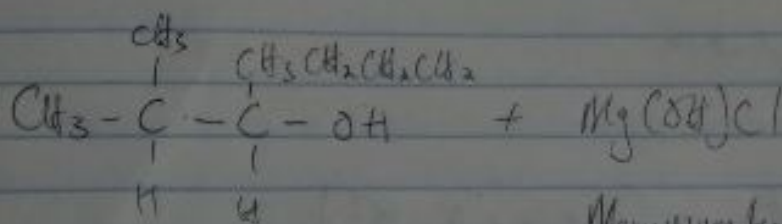 CH3
CH3CH2CH2CH2
CH3 - C - C - OH + Mg(OH)Cl
H H